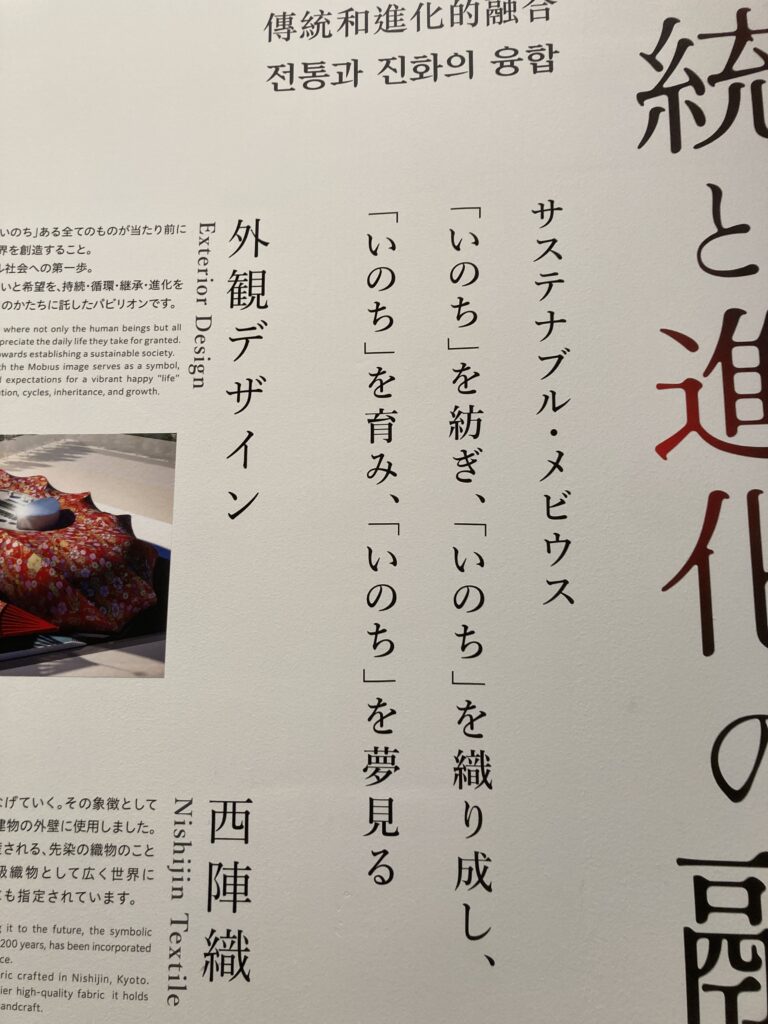 統と進化の融
傳統和進化的融合
전통과 진화의 융합
サステナブル・メビウス
「いのち」を紡ぎ、「いのち」を織り成し、
「いのち」を育み、「いのち」を夢見る
外観デザイン
Exterior Design
いのち」ある全てのものが当たり前に
界を創造すること。
ル社会への第一歩。
いと希望を、持続・循環・継承・進化を
のかたちに託したパビリオンです。
where not only the human beings but all
preciate the daily life they take for granted.
owards establishing a sustainable society.
th the Mobius image serves as a symbol,
d expectations for a vibrant happy "life"
tion, cycles, inheritance, and growth.
西陣織
Nishijin Textile
なげていく。その象徴として
建物の外壁に使用しました。
される、先染の織物のこと
級織物として広く世界に
にも指定されています。
g it to the future, the symbolic
200 years, has been incorporated
ce.
ric crafted in Nishijin, Kyoto.
ier high-quality fabric it holds
andcraft.